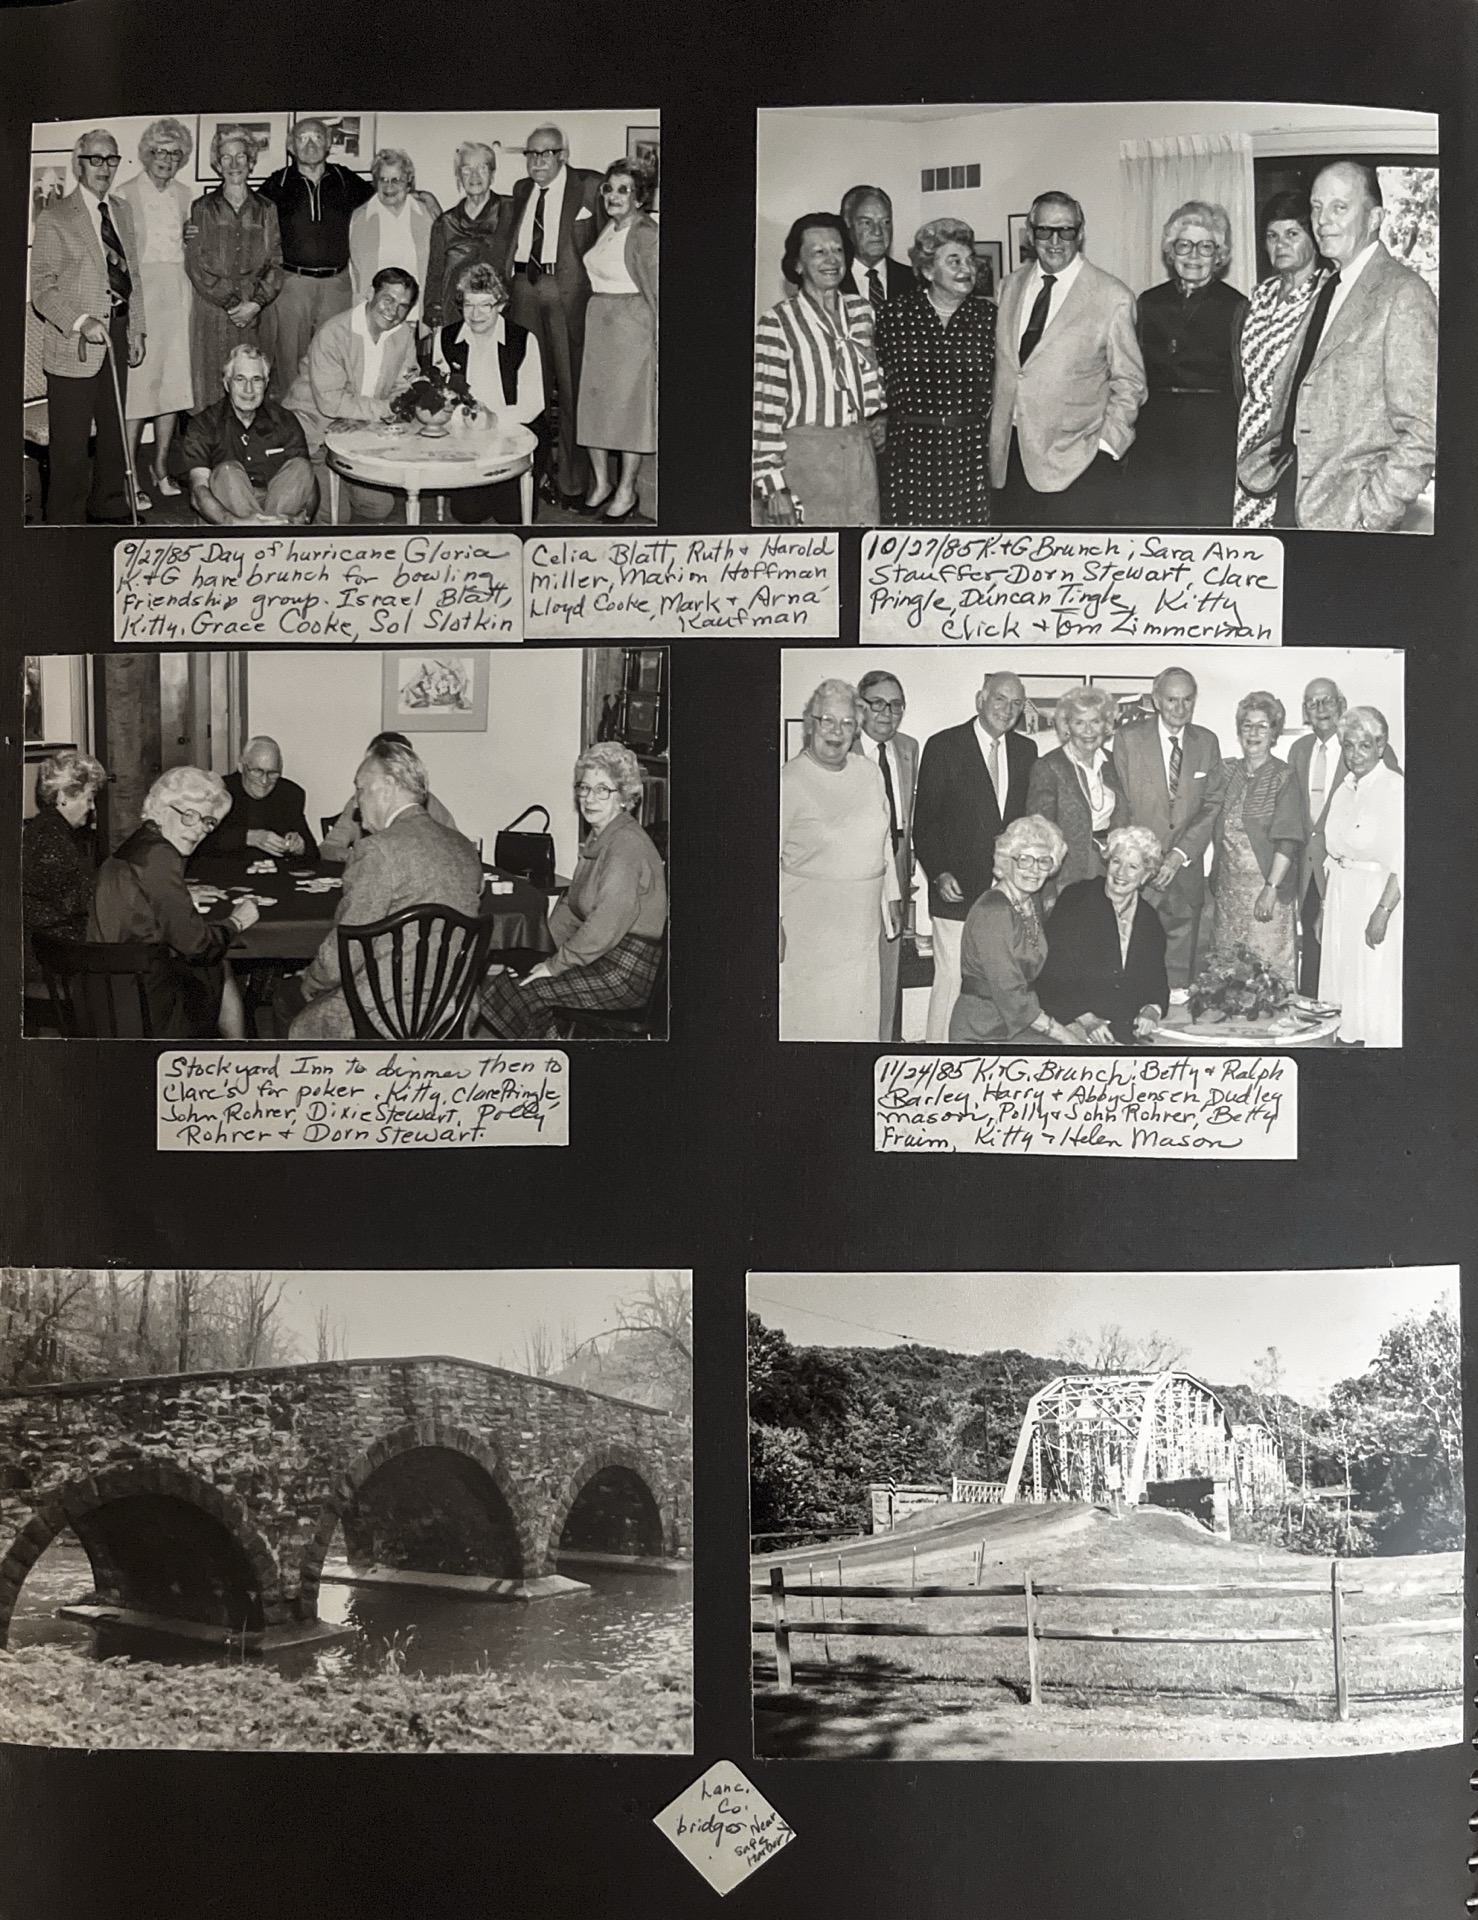 9/27/85 Day of hurricane Gloria
K.+G have brunch for bowling
friendship group. Israel Blatt,
Kitty, Grace Cooke, Sol Slotkin
Celia Blatt, Ruth + Harold
Miller, Marion Hoffman
Lloyd Cooke, Mark + Arna
Kaufman
10/27/85 K.+G Brunch; Sara Ann
Stauffer, Dorn Stewart, Clare
Pringle, Duncan Tingle, Kitty
Click + Tom Zimmerman
Stockyard Inn to dinner then to
Clare's for poker. Kitty, Clare Pringle,
John Rohrer, Dixie Stewart, Polly
Rohrer + Dorn Stewart.
11/24/85 K.+G. Brunch; Betty + Ralph
Barley, Harry + Abby Jensen, Dudley
Mason, Polly + John Rohrer, Betty
Fraim, Kitty + Helen Mason
Lanc.
Co.
bridges Near
Safe
Harbor